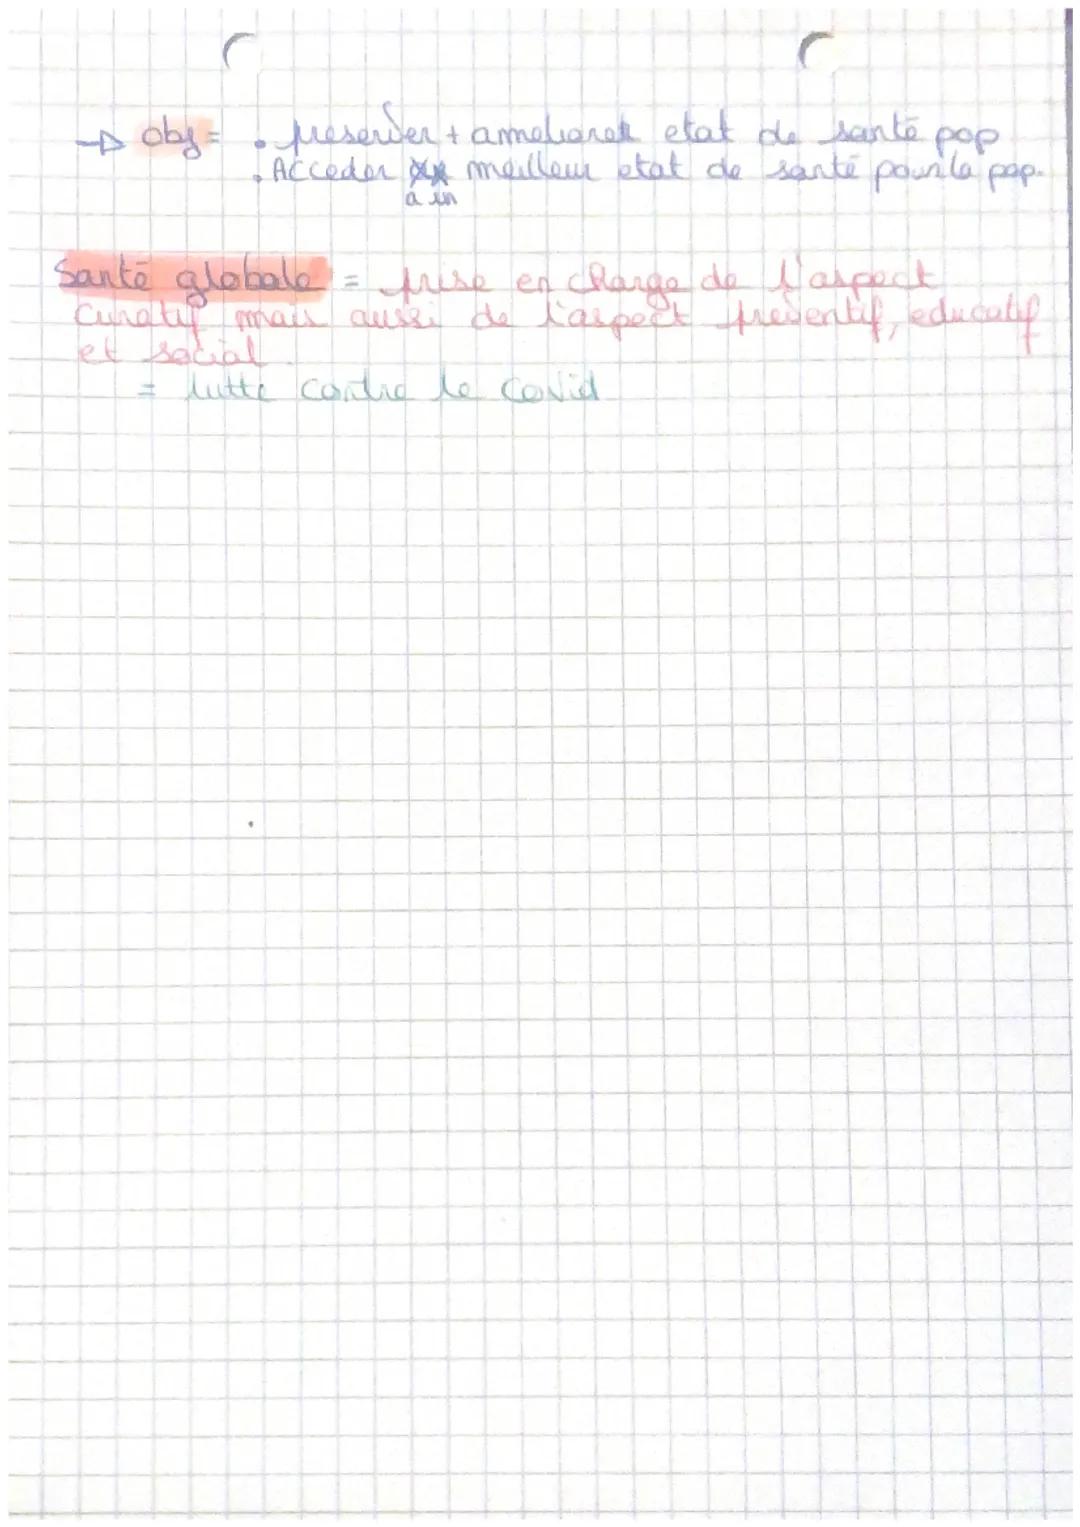 → obj = • preserver + ameliorer etat de santé pop
• Acceder xx meilleur etat de santé pour la pop.
a un
Santé globale = prise en charge de l'aspect
curatif mais aussi de l'aspect préventif, educatif
et social
= lutte contre le Covid